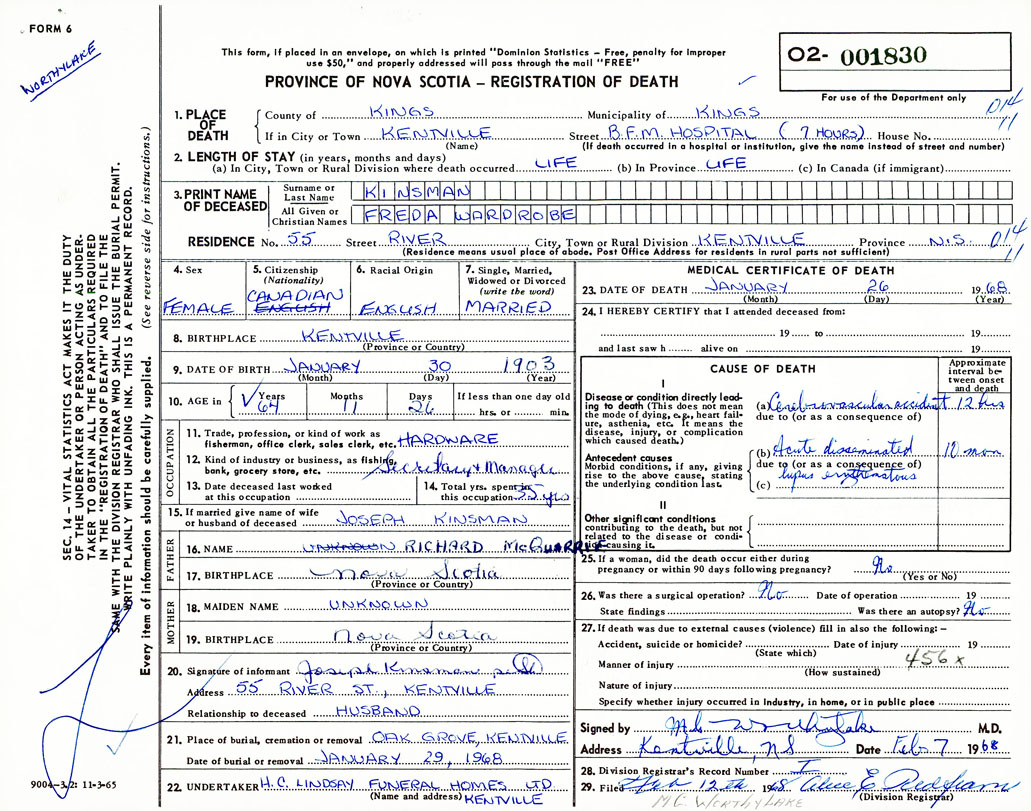 FORM 6
WORTHYLAKE
This form, if placed in an envelope, on which is printed "Dominion Statistics – Free, penalty for improper
use $50," and properly addressed will pass through the mail "FREE"
PROVINCE OF NOVA SCOTIA – REGISTRATION OF DEATH
O2- 001830
For use of the Department only
014
11
1. PLACE OF DEATH
County of KINGS Municipality of KINGS
If in City or Town KENTVILLE Street B.F.M. HOSPITAL (7 HOURS) House No.
(Name) (If death occurred in a hospital or institution, give the name instead of street and number)
2. LENGTH OF STAY (in years, months and days)
(a) In City, Town or Rural Division where death occurred LIFE (b) In Province LIFE (c) In Canada (if immigrant)
3. PRINT NAME OF DECEASED
Surname or Last Name KINSMAN
All Given or Christian Names FREDA WARDROBE
RESIDENCE No. 55 Street RIVER City, Town or Rural Division KENTVILLE Province N.S. 014
(Residence means usual place of abode. Post Office Address for residents in rural parts not sufficient) 11
4. Sex
FEMALE
5. Citizenship
(Nationality)
CANADIAN
ENGLISH
6. Racial Origin
ENGLISH
7. Single, Married,
Widowed or Divorced
(write the word)
MARRIED
8. BIRTHPLACE KENTVILLE
(Province or Country)
9. DATE OF BIRTH JANUARY 30 1903
(Month) (Day) (Year)
10. AGE in Years Months Days If less than one day old
64 11 26 hrs. or min.
OCCUPATION
11. Trade, profession, or kind of work as
fisherman, office clerk, sales clerk, etc. HARDWARE
12. Kind of industry or business, as fishing,
bank, grocery store, etc. Secretary & Manager
13. Date deceased last worked
at this occupation
14. Total yrs. spent in
this occupation 35 yrs
15. If married give name of wife
or husband of deceased JOSEPH KINSMAN
FATHER
16. NAME UNKNOWN RICHARD McQUARRIE
17. BIRTHPLACE Nova Scotia
(Province or Country)
MOTHER
18. MAIDEN NAME UNKNOWN
19. BIRTHPLACE Nova Scotia
(Province or Country)
20. Signature of informant Joseph Kinsman
Address 55 RIVER ST., KENTVILLE
Relationship to deceased HUSBAND
21. Place of burial, cremation or removal OAK GROVE, KENTVILLE
Date of burial or removal JANUARY 29, 1968
22. UNDERTAKER H.C. LINDSAY FUNERAL HOMES LTD
(Name and address) KENTVILLE
MEDICAL CERTIFICATE OF DEATH
23. DATE OF DEATH JANUARY 26 1968
(Month) (Day) (Year)
24. I HEREBY CERTIFY that I attended deceased from:
19 to 19
and last saw h alive on 19
CAUSE OF DEATH
Approximate interval between onset and death
I
Disease or condition directly leading to death (This does not mean the mode of dying, e.g., heart failure, asthenia, etc. It means the disease, injury, or complication which caused death.)
(a) Cerebrovascular accident 12 hrs
due to (or as a consequence of)
Antecedent causes
Morbid conditions, if any, giving rise to the above cause, stating the underlying condition last.
(b) Acute disseminated 10 mon.
due to (or as a consequence of)
(c) lupus
II
Other significant conditions
contributing to the death, but not related to the disease or condition causing it.
25. If a woman, did the death occur either during
pregnancy or within 90 days following pregnancy? No
(Yes or No)
26. Was there a surgical operation? No Date of operation 19
State findings Was there an autopsy? No
27. If death was due to external causes (violence) fill in also the following: –
Accident, suicide or homicide? Date of injury 19
(State which) 456 x
Manner of injury
(How sustained)
Nature of injury
Specify whether injury occurred in Industry, in home, or in public place
Signed by M.D.
Address Kentville, NS Date Feb 7 1968
28. Division Registrar's Record Number I
29. Filed Feb 12th 1968
(Division Registrar)
M C WORTHYLAKE
SEC. 14 – VITAL STATISTICS ACT MAKES IT THE DUTY
OF THE UNDERTAKER OR PERSON ACTING AS UNDER-
TAKER TO OBTAIN ALL THE PARTICULARS REQUIRED
IN THE "REGISTRATION OF DEATH" AND TO FILE THE
SAME WITH THE DIVISION REGISTRAR WHO SHALL ISSUE THE BURIAL PERMIT.
WRITE PLAINLY WITH UNFADING INK. THIS IS A PERMANENT RECORD.
Every item of information should be carefully supplied. (See reverse side for instructions.)
9004–3.2: 11-3-65